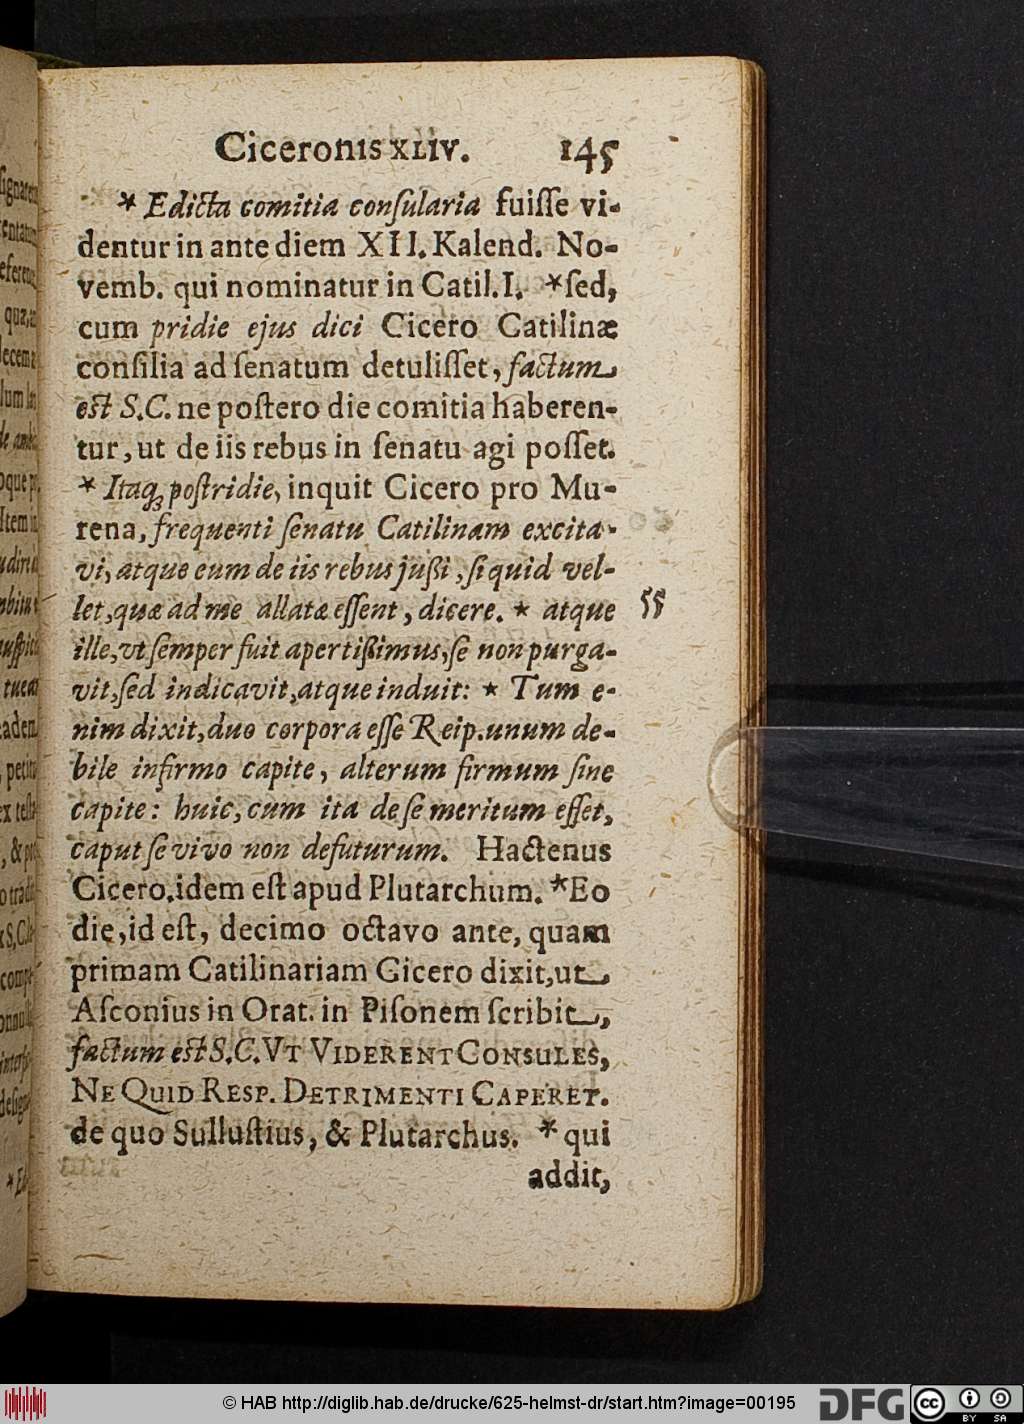 Ciceronis XLIV. 145
* Edicta comitia conſularia fuiſſe vi-
dentur in ante diem XII. Kalend. No-
vemb. qui nominatur in Catil. I. *ſed,
cum pridie ejus dici Cicero Catilinæ
conſilia ad ſenatum detuliſſet, factum
est S.C. ne poſtero die comitia haberen-
tur, ut de iis rebus in ſenatu agi poſſet.
* Itaq; poſtridie, inquit Cicero pro Mu-
rena, frequenti ſenatu Catilinam excita-
vi, atque eum de iis rebus jußi, ſi quid vel-
let, quæ ad me allatæ eſſent, dicere. * atque 55
ille, vt ſemper fuit apertißimus, ſe non purga-
vit, ſed indicavit, atque induit: * Tum e-
nim dixit, duo corpora eſſe Reip. unum de-
bile infirmo capite, alterum firmum ſine
capite: huic, cum ita de ſe meritum eſſet,
caput ſe vivo non defuturum. Hactenus
Cicero. idem eſt apud Plutarchum. *Eo
die, id eſt, decimo octavo ante, quam
primam Catilinariam Cicero dixit, ut
Aſconius in Orat. in Piſonem ſcribit,
factum est S.C. VT VIDERENT CONSULES,
NE QUID RESP. DETRIMENTI CAPERET.
de quo Salluſtius, & Plutarchus. * qui
addit,
© HAB http://diglib.hab.de/drucke/625-helmst-dr/start.htm?image=00195
DFG
cc BY SA